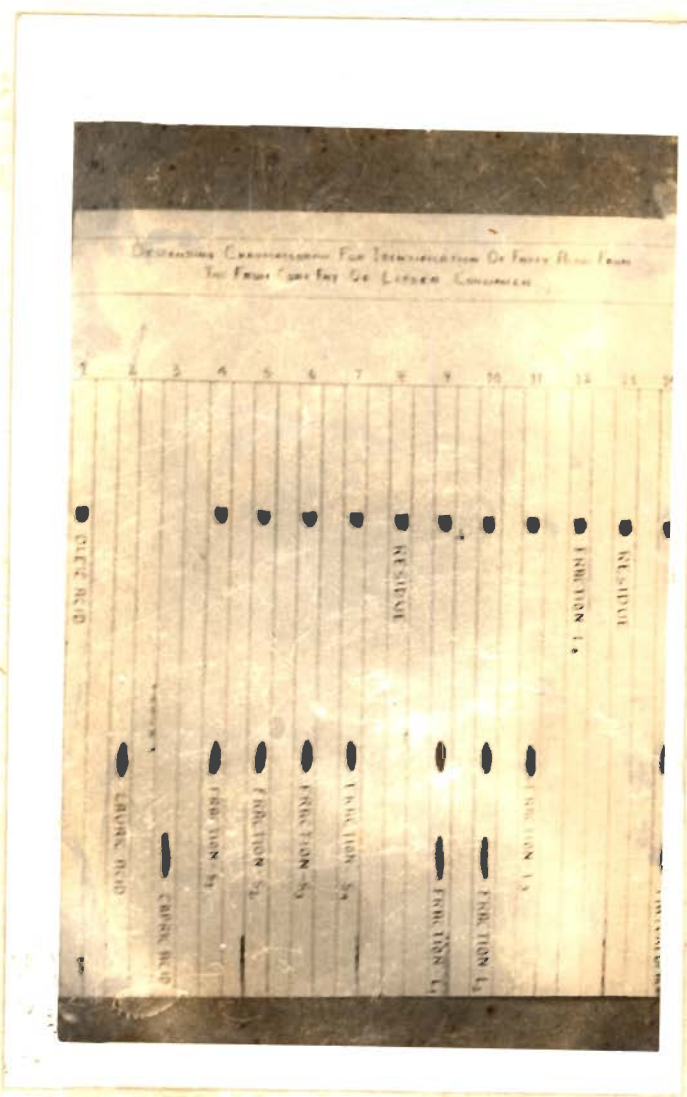 DESCENDING CHROMATOGRAM FOR IDENTIFICATION OF FATTY ACIDS FROM
THE FRUIT COAT FAT OF LITSEA
1 2 3 4 5 6 7 8 9 10 11 12 13
OLEIC ACID
LAURIC ACID
CAPRIC ACID
FRACTION S₁
FRACTION S₂
FRACTION S₃
FRACTION S₄
RESIDUE
FRACTION L₁
FRACTION L₂
FRACTION L₃
FRACTION L₄
RESIDUE